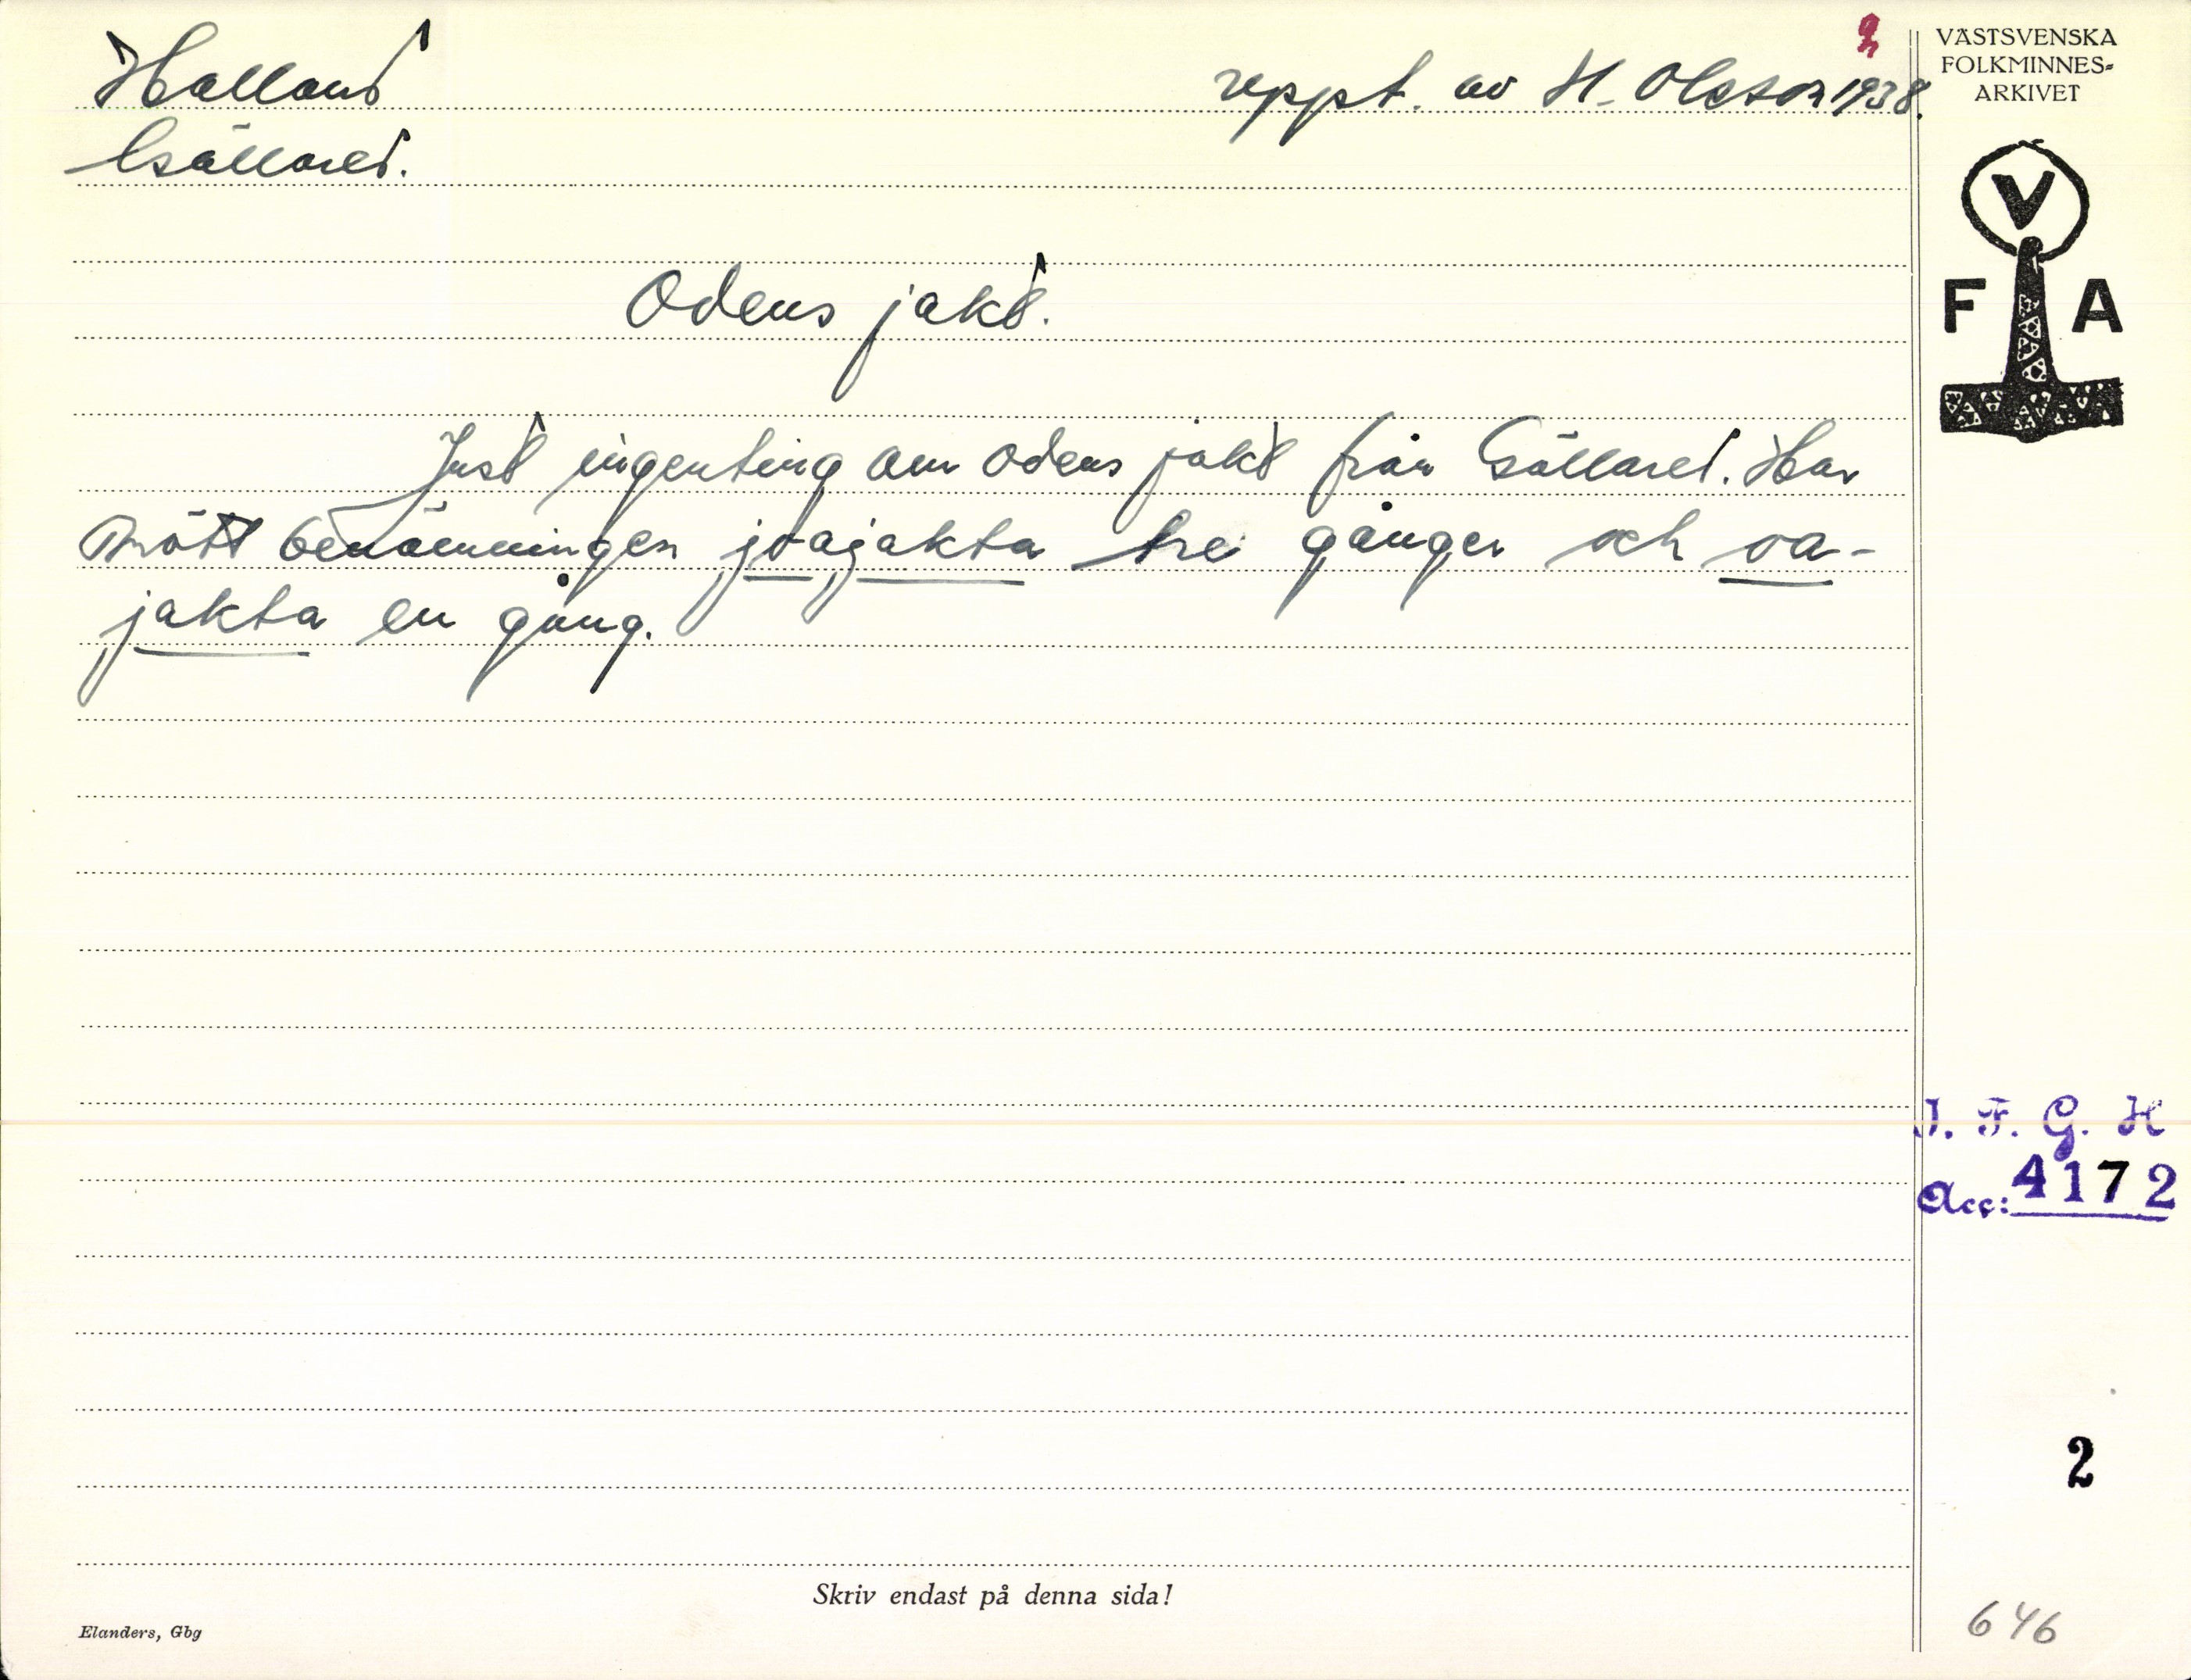 2
Halland
reppt. av H. Olsson 1938.
Gällared.
Odens jakt.
Just ingenting om Odens jakt från Gällared. Har
mött benämningen joajakta tre gånger och oa-
jakta en gång.
VÄSTSVENSKA
FOLKMINNES-
ARKIVET
V
F A
I. F. G. H
Acc: 4172
2
646
Skriv endast på denna sida!
Elanders, Gbg